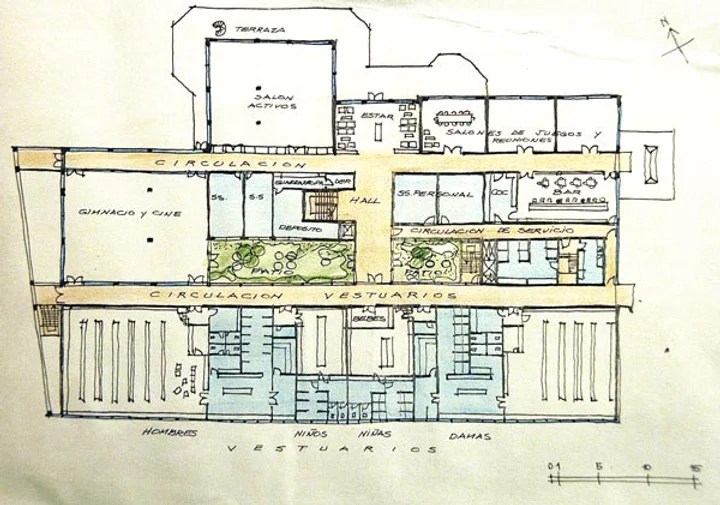 N
TERRAZA
SALON
ACTIVOS
ESTAR
SALONES DE JUEGOS Y
REUNIONES
CIRCULACION
GIMNACIO Y CINE
SS.
S.S
GUARDARROPA
DEP.
DEPOSITO
HALL
SS. PERSONAL
COC
BAR
CIRCULACION DE SERVICIO
PATIO
PATIO
CIRCULACION VESTUARIOS
BEBES
HOMBRES
NIÑOS
NIÑAS
DAMAS
VESTUARIOS
0 1 5 10 15